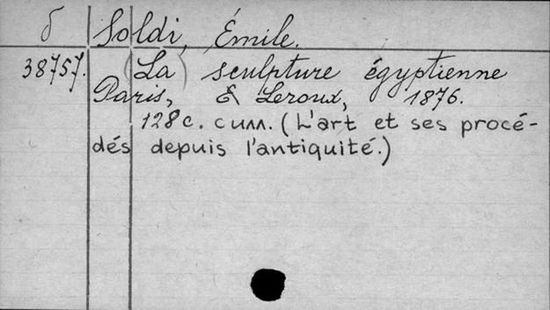 δ Soldi, Émile.
38757. (La) sculpture égyptienne
Paris, E Leroux, 1876.
128 с. силл. (L'art et ses procé-
dés depuis l'antiquité.)